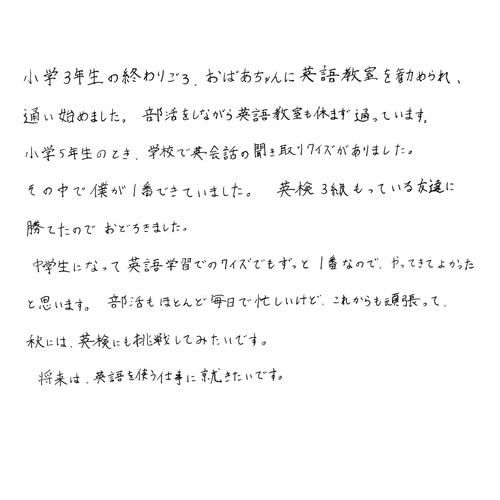 小学3年生の終わりごろ、おばあちゃんに英語教室を勧められ、
通い始めました。 部活をしながら英語教室も休まず通っています。
小学5年生のとき、学校で英会話の聞き取りクイズがありました。
その中で僕が1番できていました。 英検3級もっている友達に
勝てたのでおどろきました。
中学生になって英語学習でのクイズでもずっと1番なので、やってきてよかった
と思います。 部活もほとんど毎日で忙しいけど、これからも頑張って、
秋には、英検にも挑戦してみたいです。
将来は、英語を使う仕事に就きたいです。